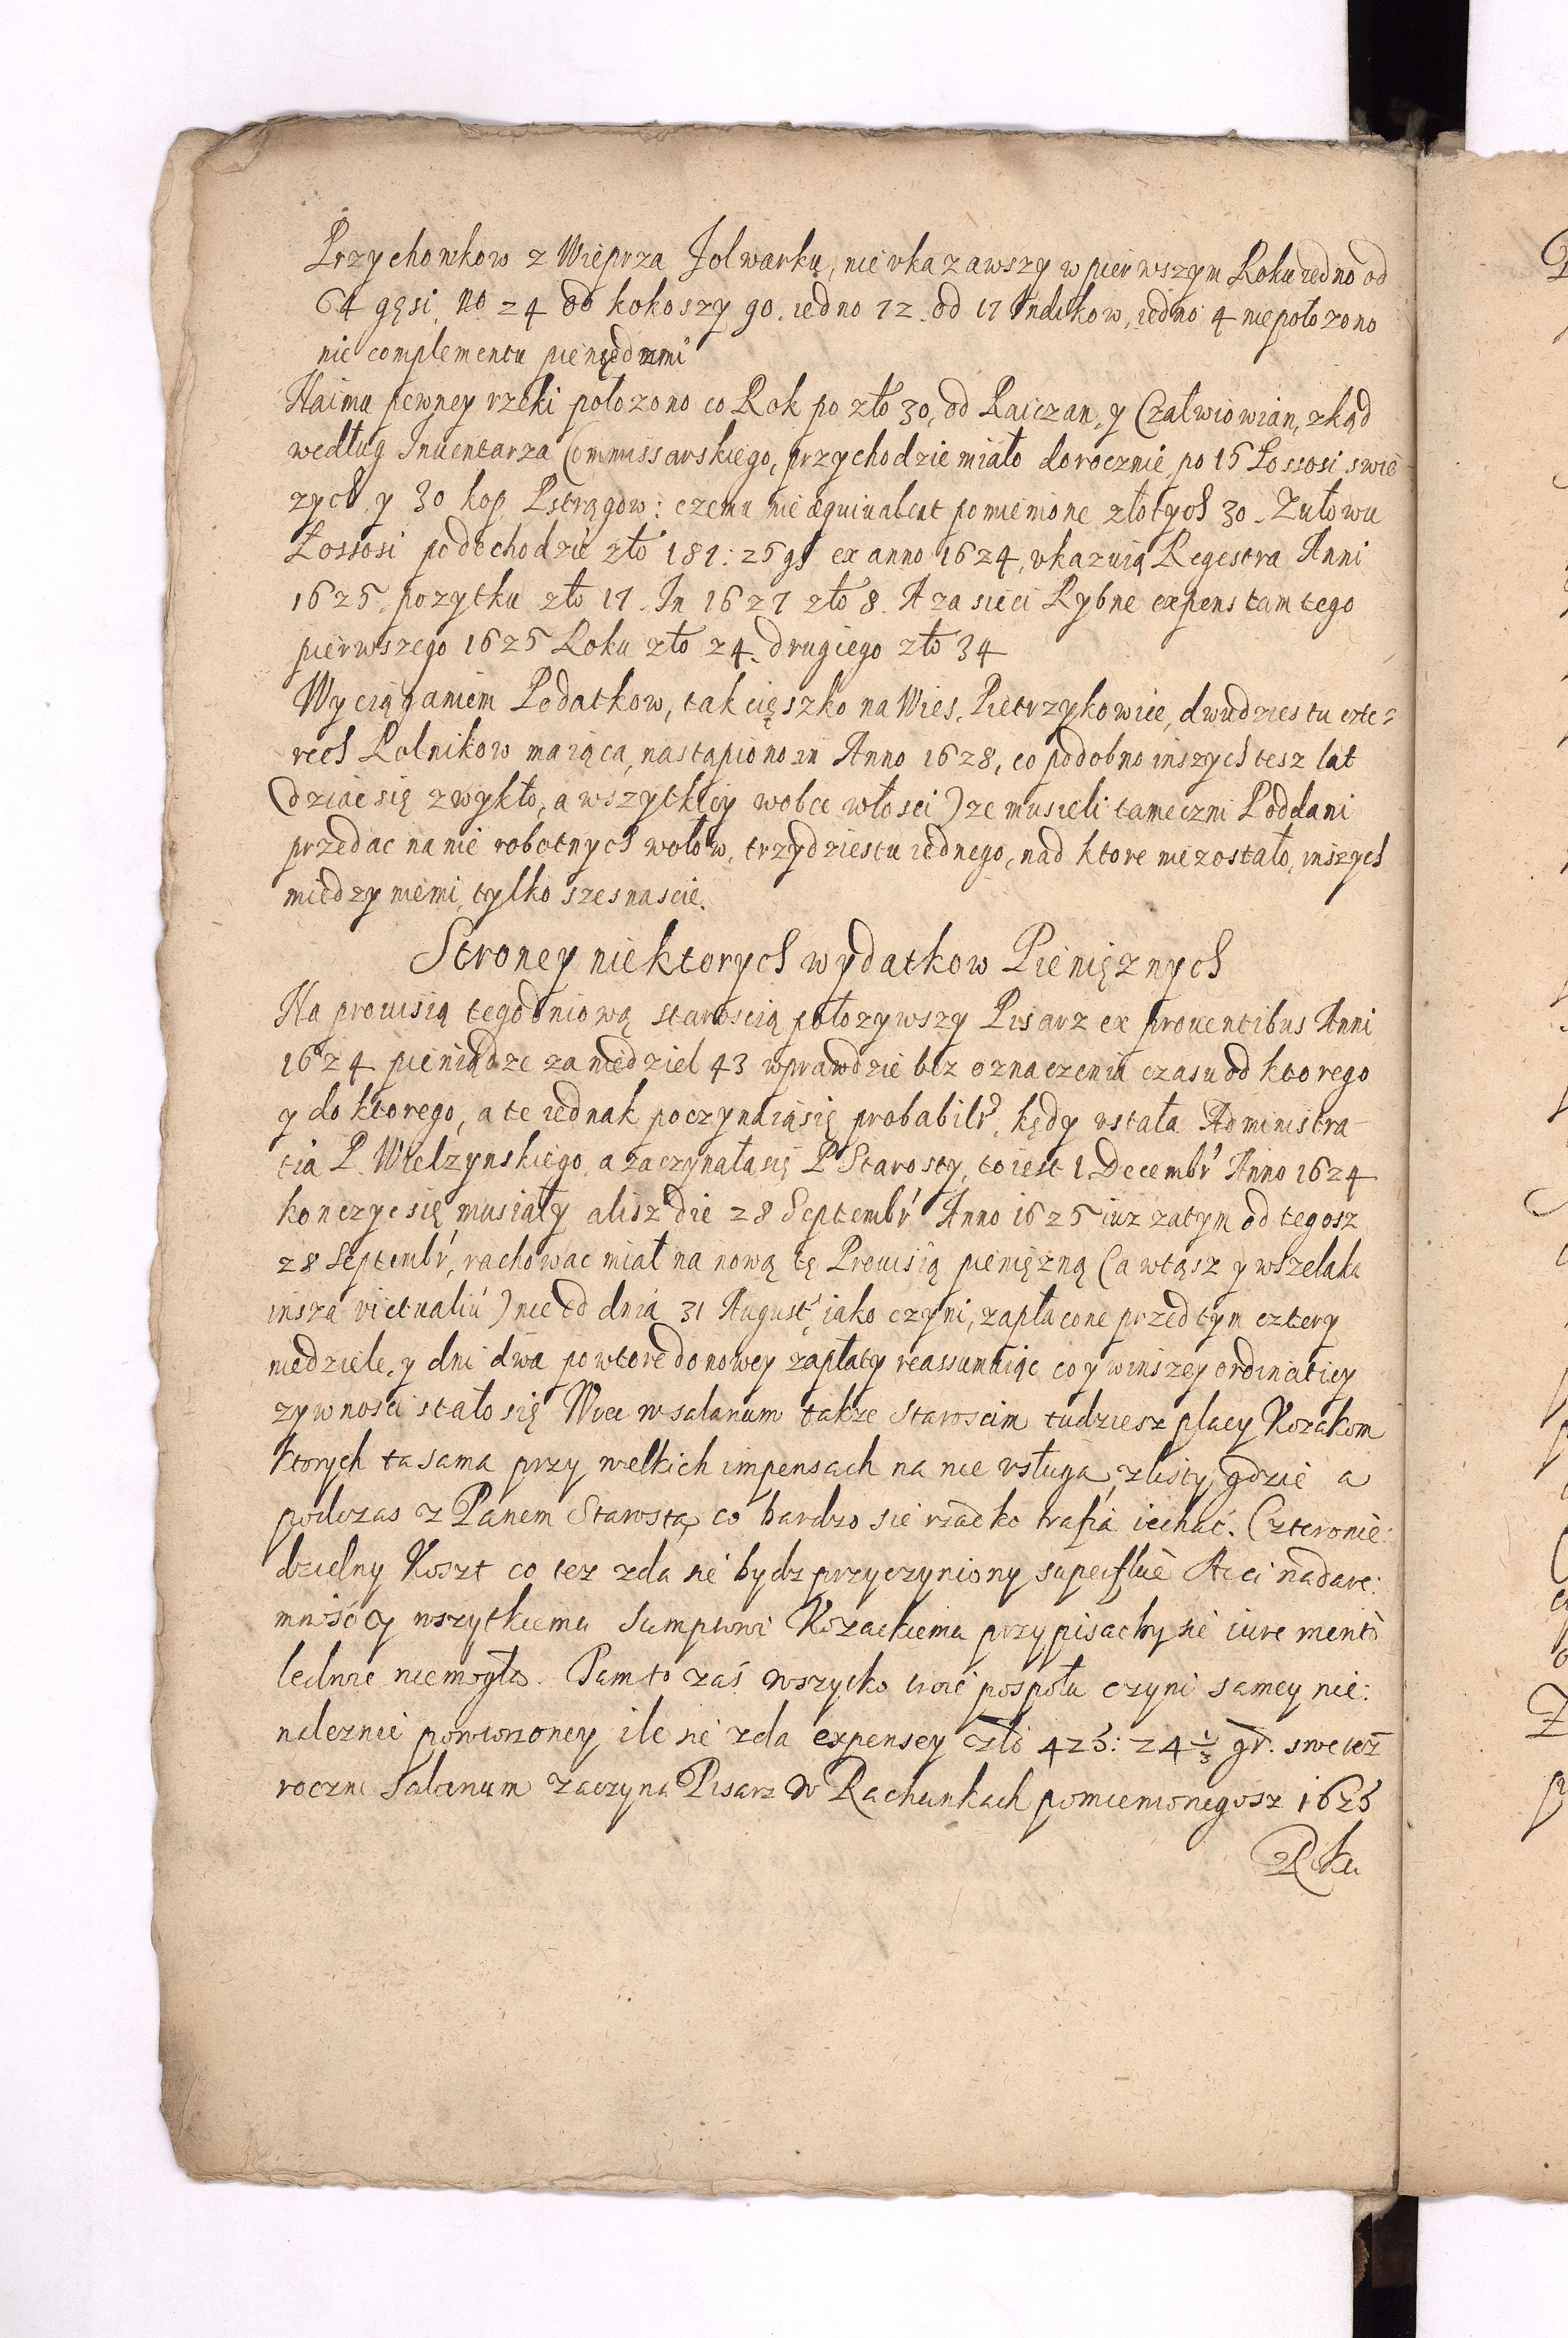 Przychowkow z Wieprza Folwarku, nie vkazawszy w pierwszym Roku iedno od
64 gęsi, No 24 od kokoszy 90. iedno 72. od 17 Indikow, iedno 4 nie polozono
nic complementu pieniędzmi
Naimu pewney rzeki polozono co Rok po zło 30, od Raiczan, y Czatwiowian, zkąd
według Inuentarza Commissarskiego, przychodzic miało dorocznie po 15 Łossosi swie
zych, y 30 kop Pstrągow: czemu nie aequiualent pomienione złotych 30. Zułowu
Łossosi podochodzie zło 181: 25 gr ex anno 1624, vkazuią Regestra Anni
1625, pozytku zło 17. In 1627 zło 8. A za sieci Rybne expens tamtego
pierwszego 1625 Roku zło 24. drugiego zło 34
Wyciąganiem Podatkow, tak cięszko na Wies, Pietrzykowice, dwudziestu czte=
rech Rolnikow maiąca, nastąpiono in Anno 1628, co podobno inszych tesz lat
(dziac się zwykło, a wszytkiey wobce włosci) ze musieli tameczni Poddani
przedac na nie robotnych wołow, trzydziestu iednego, nad ktore nie zostało, inszych
między niemi, tylko szesnascie.
Stroney niektorych wydatkow Pieniężnych
Na prouisią tegodniową starością połozywszy Pisarz ex prouentibus Anni
1624 pieniądze za niedziel 43 wprawdzie bez oznaczenia czasu od ktorego
y do ktorego, a te iednak poczynaią się probabilr, kędy vstała Administra-
tia P. Wielzynskiego, a zaczynała się P Starosty, to iest 1 Decembr Anno 1624
konczyc się musiały alisz die 28 Septembr Anno 1625 iuz zatym od tegosz
28 Septembr, rachowac miał na nową tę Prouisią pieniężną (a wtąsz y wszelaka
insza victualiu) nie od dnia 31 August, iako czyni, zapłacone przed tym cztery
niedziele, y dni dwa powtore do nowey zapłaty reassumuiąc co y winszey ordinatiey
zywnosci stało się Wiec w salarium także staroscim tudziesz płacy Kozakom
ktorych ta sama przy wielkich impensach na nie vsługa, z listy gdzie a
podczas z Panem Starostą, co bardzo sie rzadko trafia iechać. Czteronie:
dzielny Koszt co tez zda sie bydz przyczyniony superfluè Aci nadare:
mnośćy wszytkiemu Sumptowi Kozackiemu przypisacby sie iure merito
ledwie niemogło. Pam to zaś wszytko troie pospołu czyni samey nie:
nalezniei powinoney ile sie zda expensey zło 425: 24 1/3 gr.
roczni salarium zaczyna Pisarz w Rachunkach pomienionegosz 1625
Roku